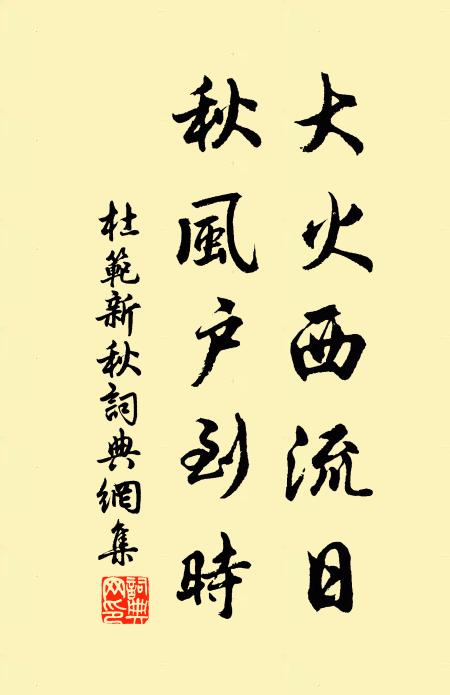 大火西流日
秋風户到時
杜範新秋詞典網集
詞典網印